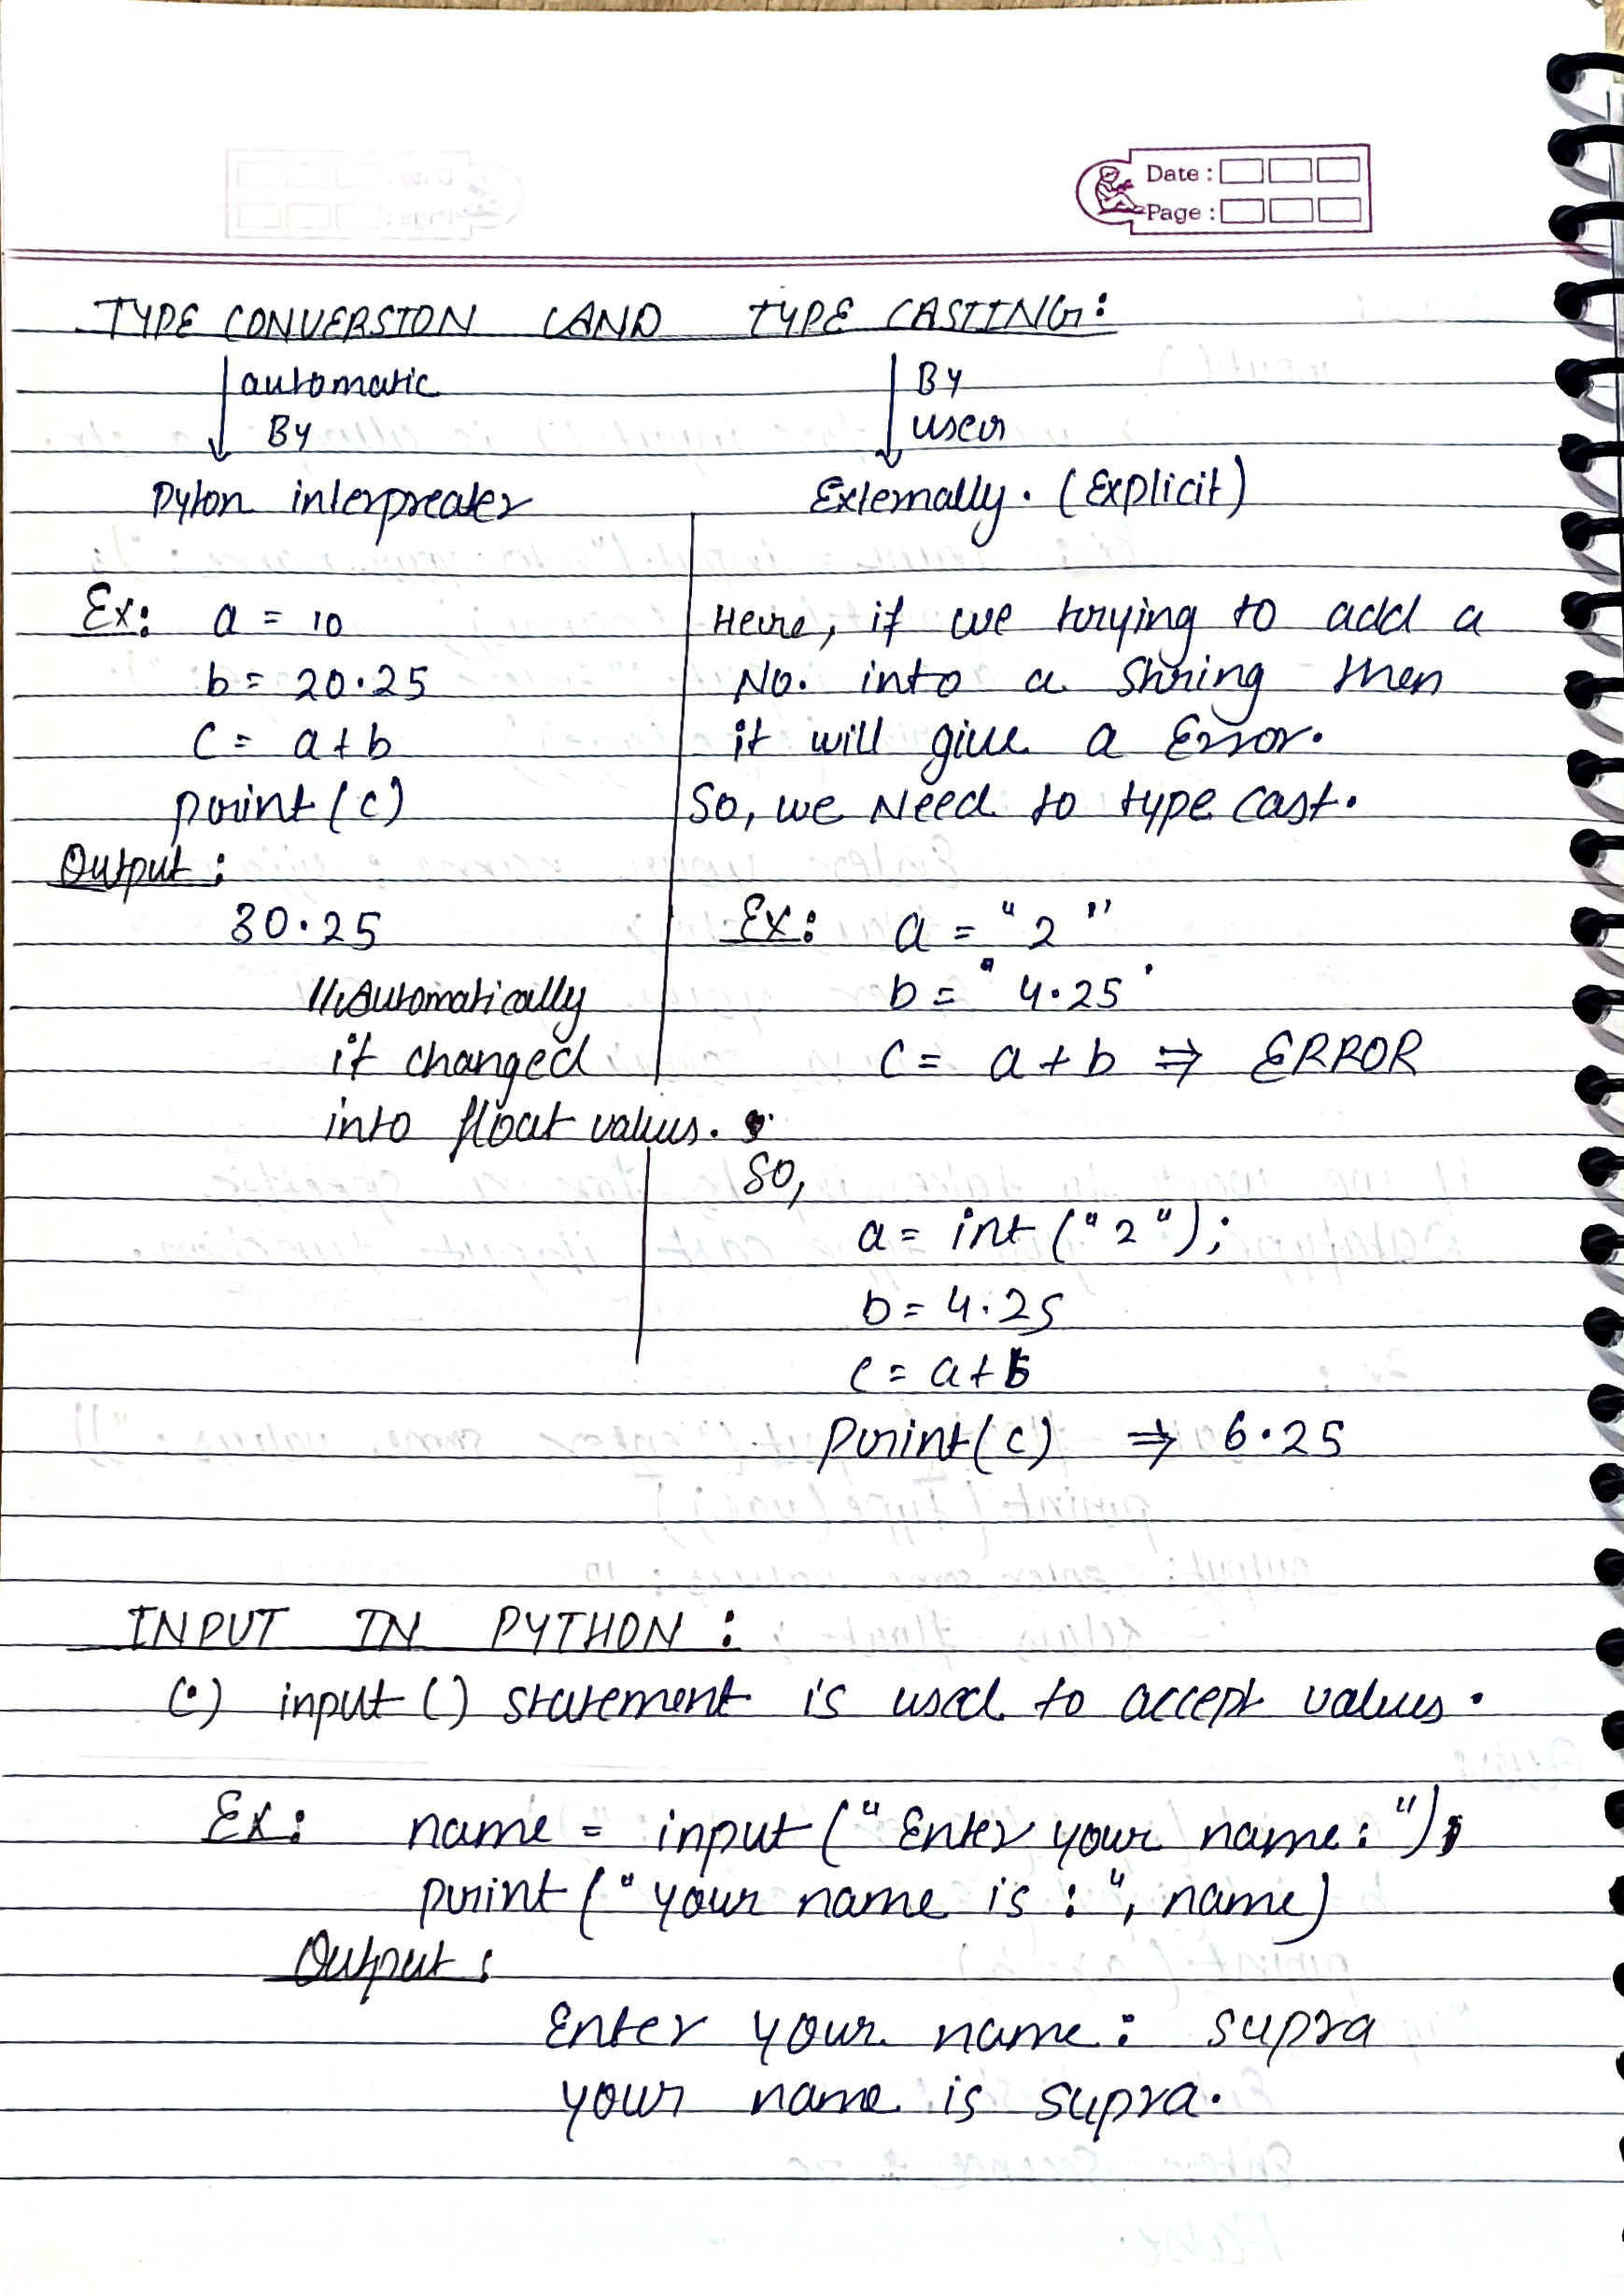 Date :
Page :
TYPE CONVERSION AND TYPE CASTING:
automatic
By
Pyton interpreater
By
user
Externally. (Explicit)
Ex: a = 10
b = 20.25
C = a + b
print (c)
Output :
30.25
// Automatically
it changed
into float values.
Here, if we trying to add a
No. into a String then
it will give a Error.
So, we Need to type cast.
Ex: a = "2"
b = "4.25"
C = a + b ⇒ ERROR
So,
a = int ("2");
b = 4.25
c = a + b
print (c) ⇒ 6.25
INPUT IN PYTHON :
(•) input () statement is used to accept values.
Ex: name = input ("Enter your name: ");
print ("your name is : ", name)
Output :
Enter your name : supra
your name is supra.